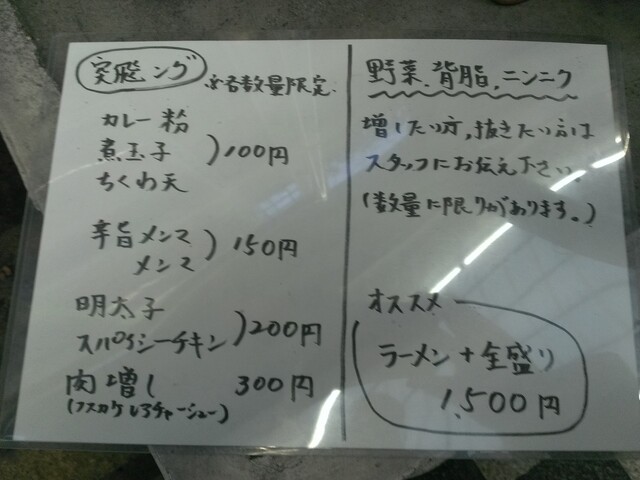 実飛ング
※各数量限定
カレー粉
煮玉子
ちくわ天
100円
辛旨メンマ
メンマ
150円
明太子
スパイシーチキン
200円
肉増し 300円
チャーシュー)
野菜、背脂、ニンニク
増したい方、抜きたい方は
スタッフにお伝え下さい。
(数量に限りがあります。)
オススメ
ラーメン+全盛り
1,500円